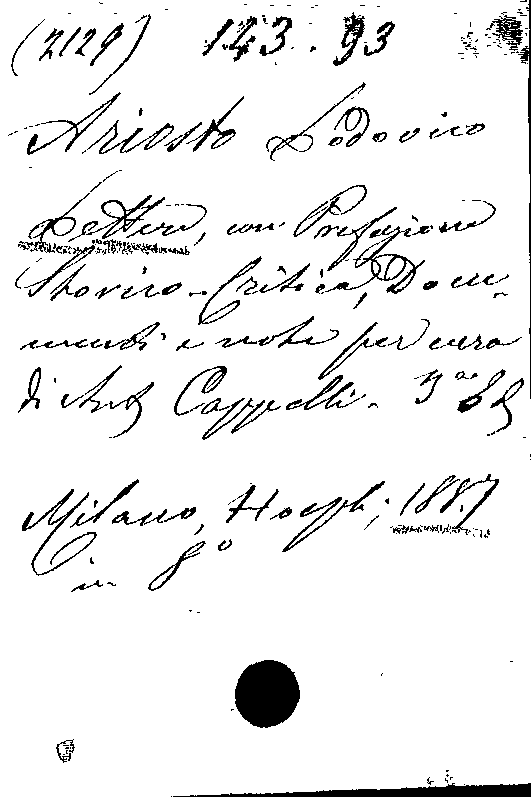 (2129) 143.93
Ariosto Lodovico
Lettere, con Prefazione
Storico-Critica, Docu-
menti e note per cura
di Ant Cappelli. 3ª Ed
Milano, Hoepli, 1887
in 8º